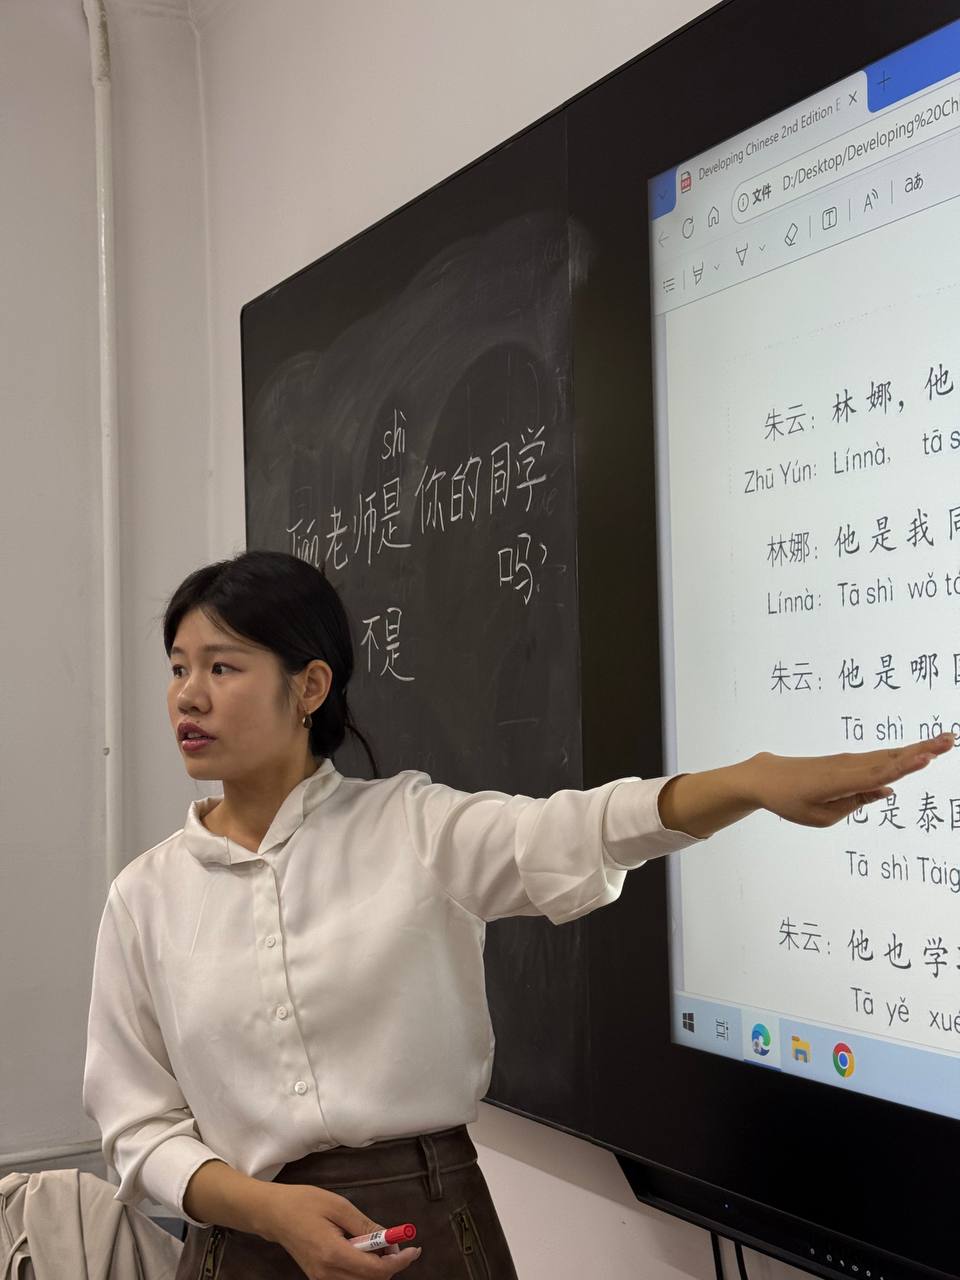 shì
老师是你的同学
吗?
不是
Developing Chinese 2nd Edition E
文件 D:/Desktop/Developing%20Chi
aあ
朱云：林娜，他
Zhū Yún: Línnà, tā s
林娜：他是我同
Línnà: Tā shì wǒ tó
朱云：他是哪国
Tā shì nǎ g
他是泰国
Tā shì Tàig
朱云：他也学
Tā yě xué